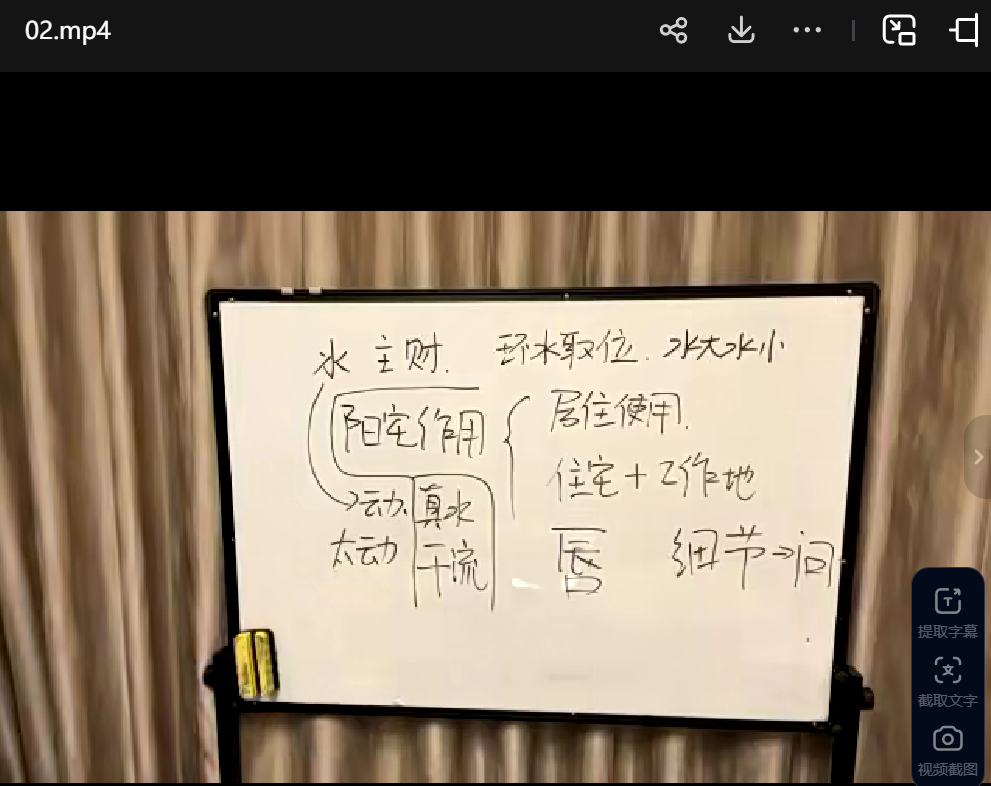 02.mp4
水主财. 环水取位. 水大水小
阳宅作用 { 居住使用.
住宅+工作地
→动. 真水
太动 干流
唇 细节→问
提取字幕
截取文字
视频截图